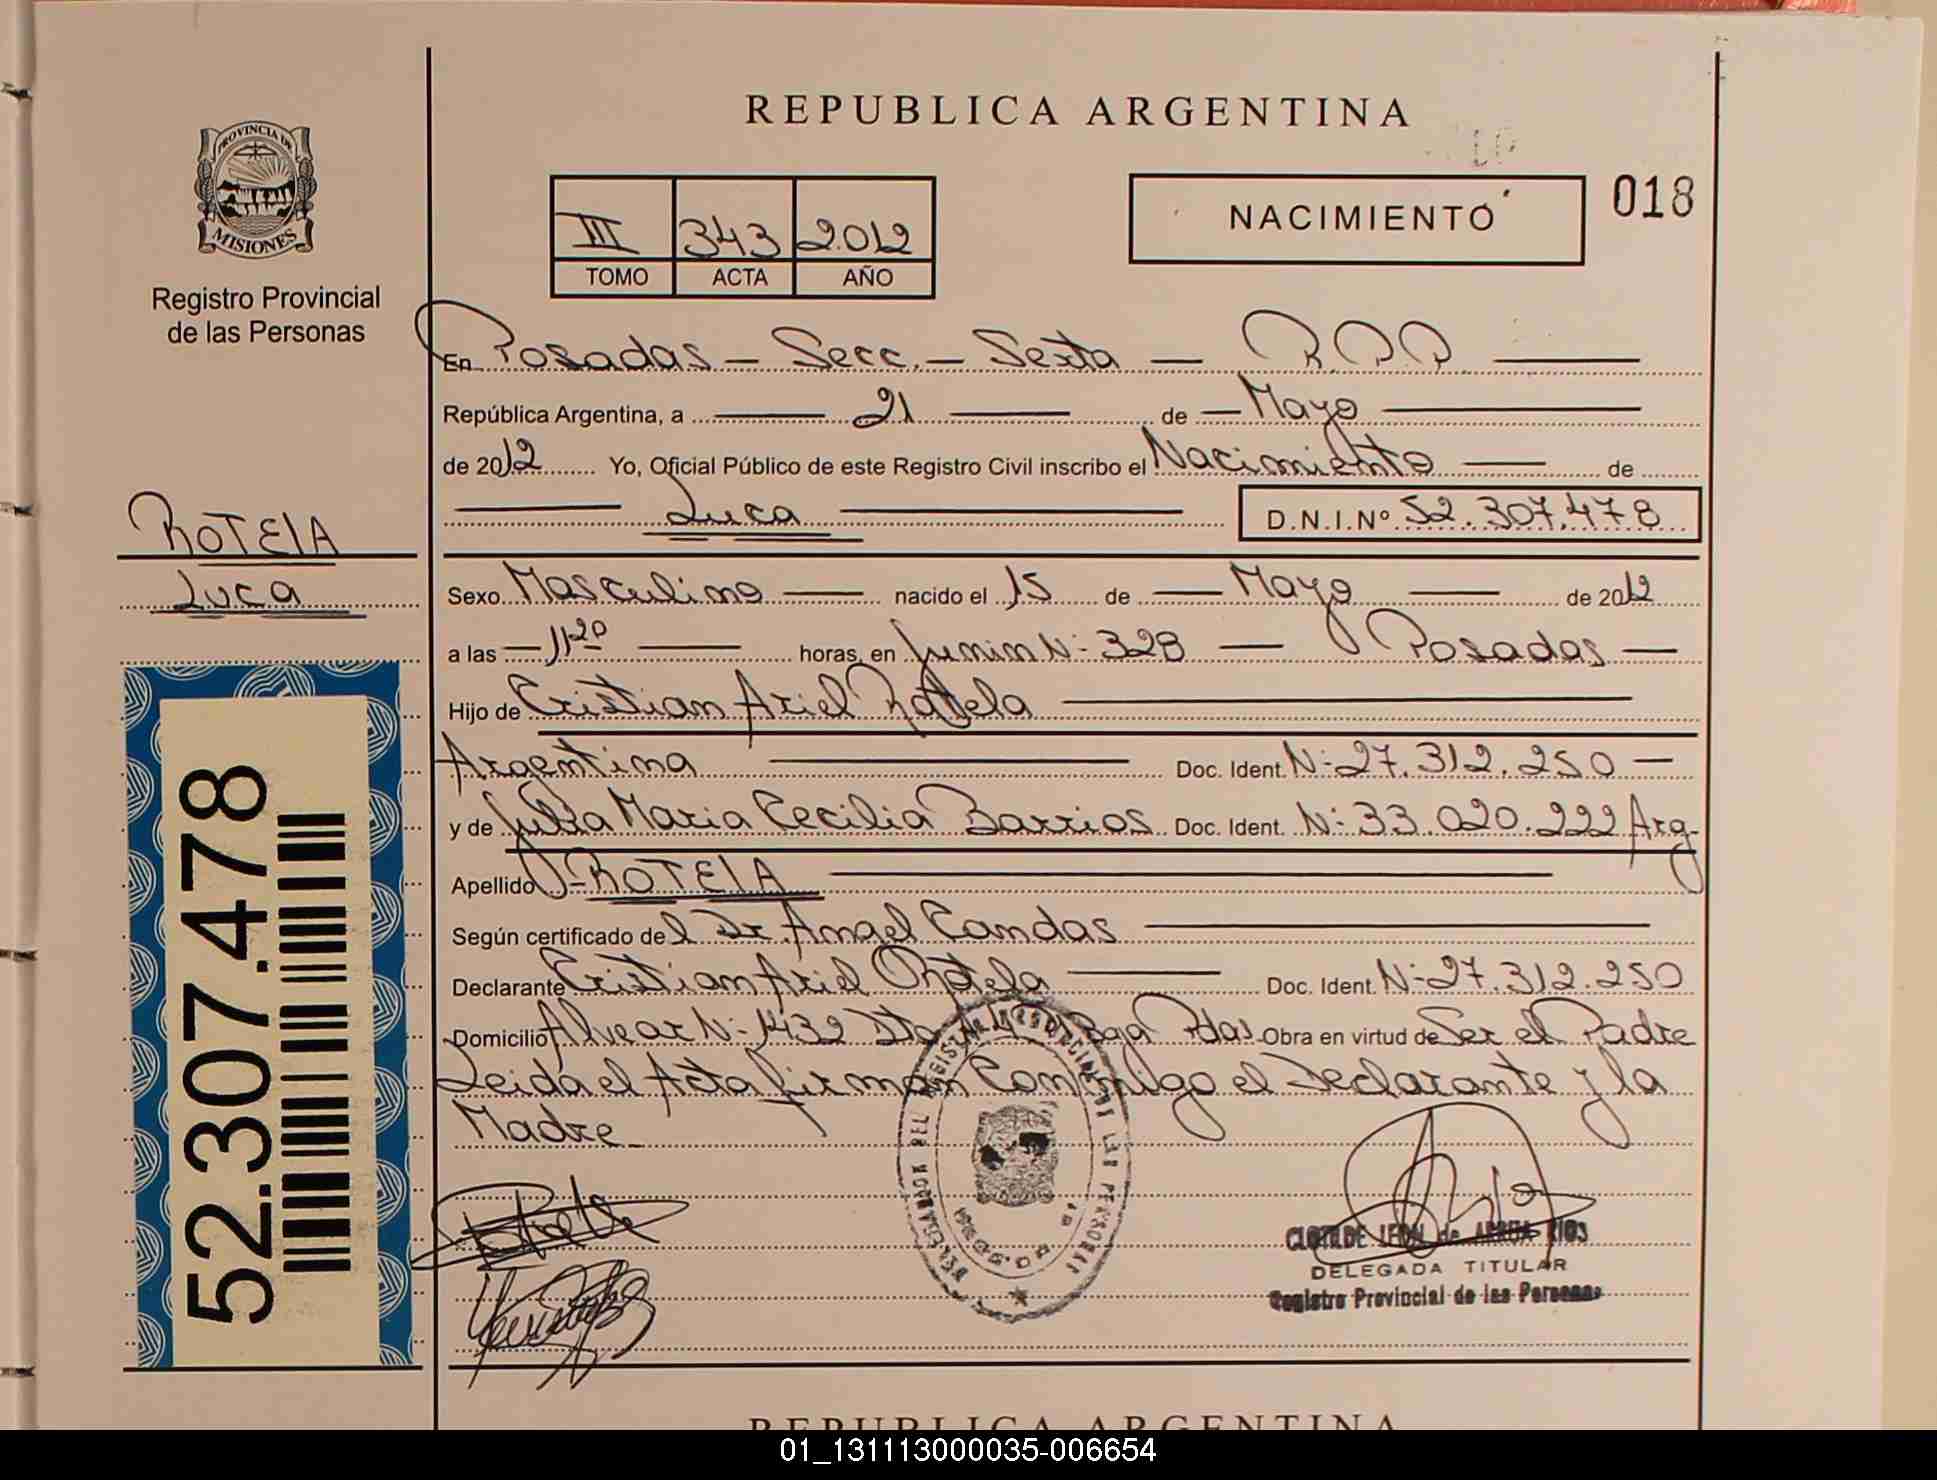 REPUBLICA ARGENTINA
PROVINCIA DE
MISIONES
Registro Provincial
de las Personas
III 343 2012
TOMO ACTA AÑO
NACIMIENTO
018
En Posadas - Secc. - Sexta - R.P.P.
República Argentina, a 21 de Mayo
de 2012 Yo, Oficial Público de este Registro Civil inscribo el Nacimiento de
Luca D.N.I.Nº 52.307.478
ROTELA
Luca
Sexo Masculino nacido el 15 de Mayo de 2012
a las 11 20 horas, en Junin Nº 328 - Posadas
Hijo de Cristian Ariel Rotela
Argentina Doc. Ident. Nº 27.312.250
y de Maria Cecilia Barrios Doc. Ident. Nº 33.020.222 Arg-
Apellido - ROTELA
Según certificado del Dr Angel Candas
Declarante Cristian Ariel Rotela Doc. Ident. Nº 27.312.250
Domicilio Alvear Nº 1432 Pdas. Obra en virtud de Ser el Padre
Leida el Acta firman Conmigo el Declarante y la
Madre-
CLOTILDE LEAL de ARRUA RIOS
DELEGADA TITULAR
Registro Provincial de las Personas
52.307.478
REPUBLICA ARGENTINA
01_131113000035-006654